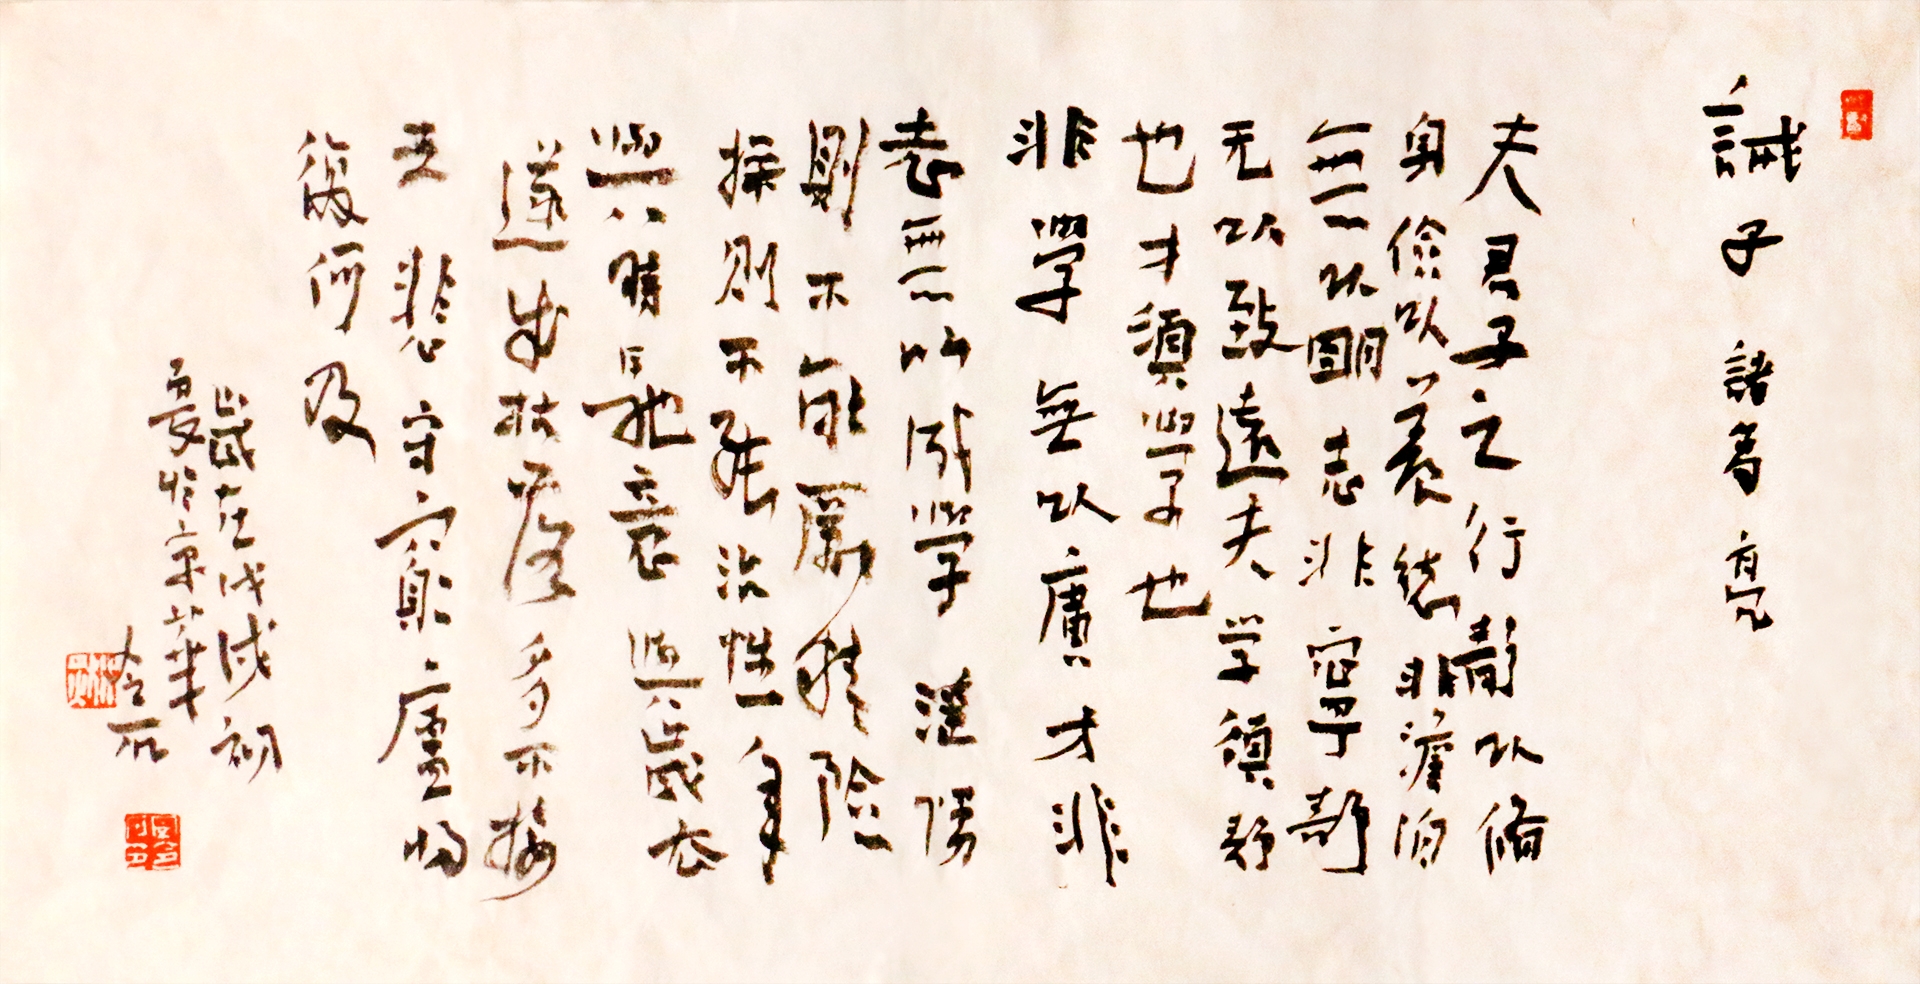 誡子 諸葛亮
夫君子之行靜以脩
身儉以養德非澹泊
無以明志非寧靜
无以致遠夫学須靜
也才須學也
非學無以廣才非
志無以成學淫慢
則不能厲精險
操則不能治性年
與時馳意與歲去
遂成枯落多不接
世悲守窮廬將
復何及
歲在戊戌初
夏於京華
石